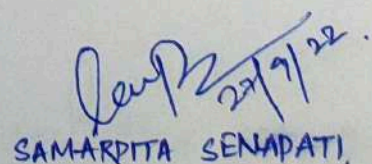 27/9/22.
SAMARPITA SENAPATI